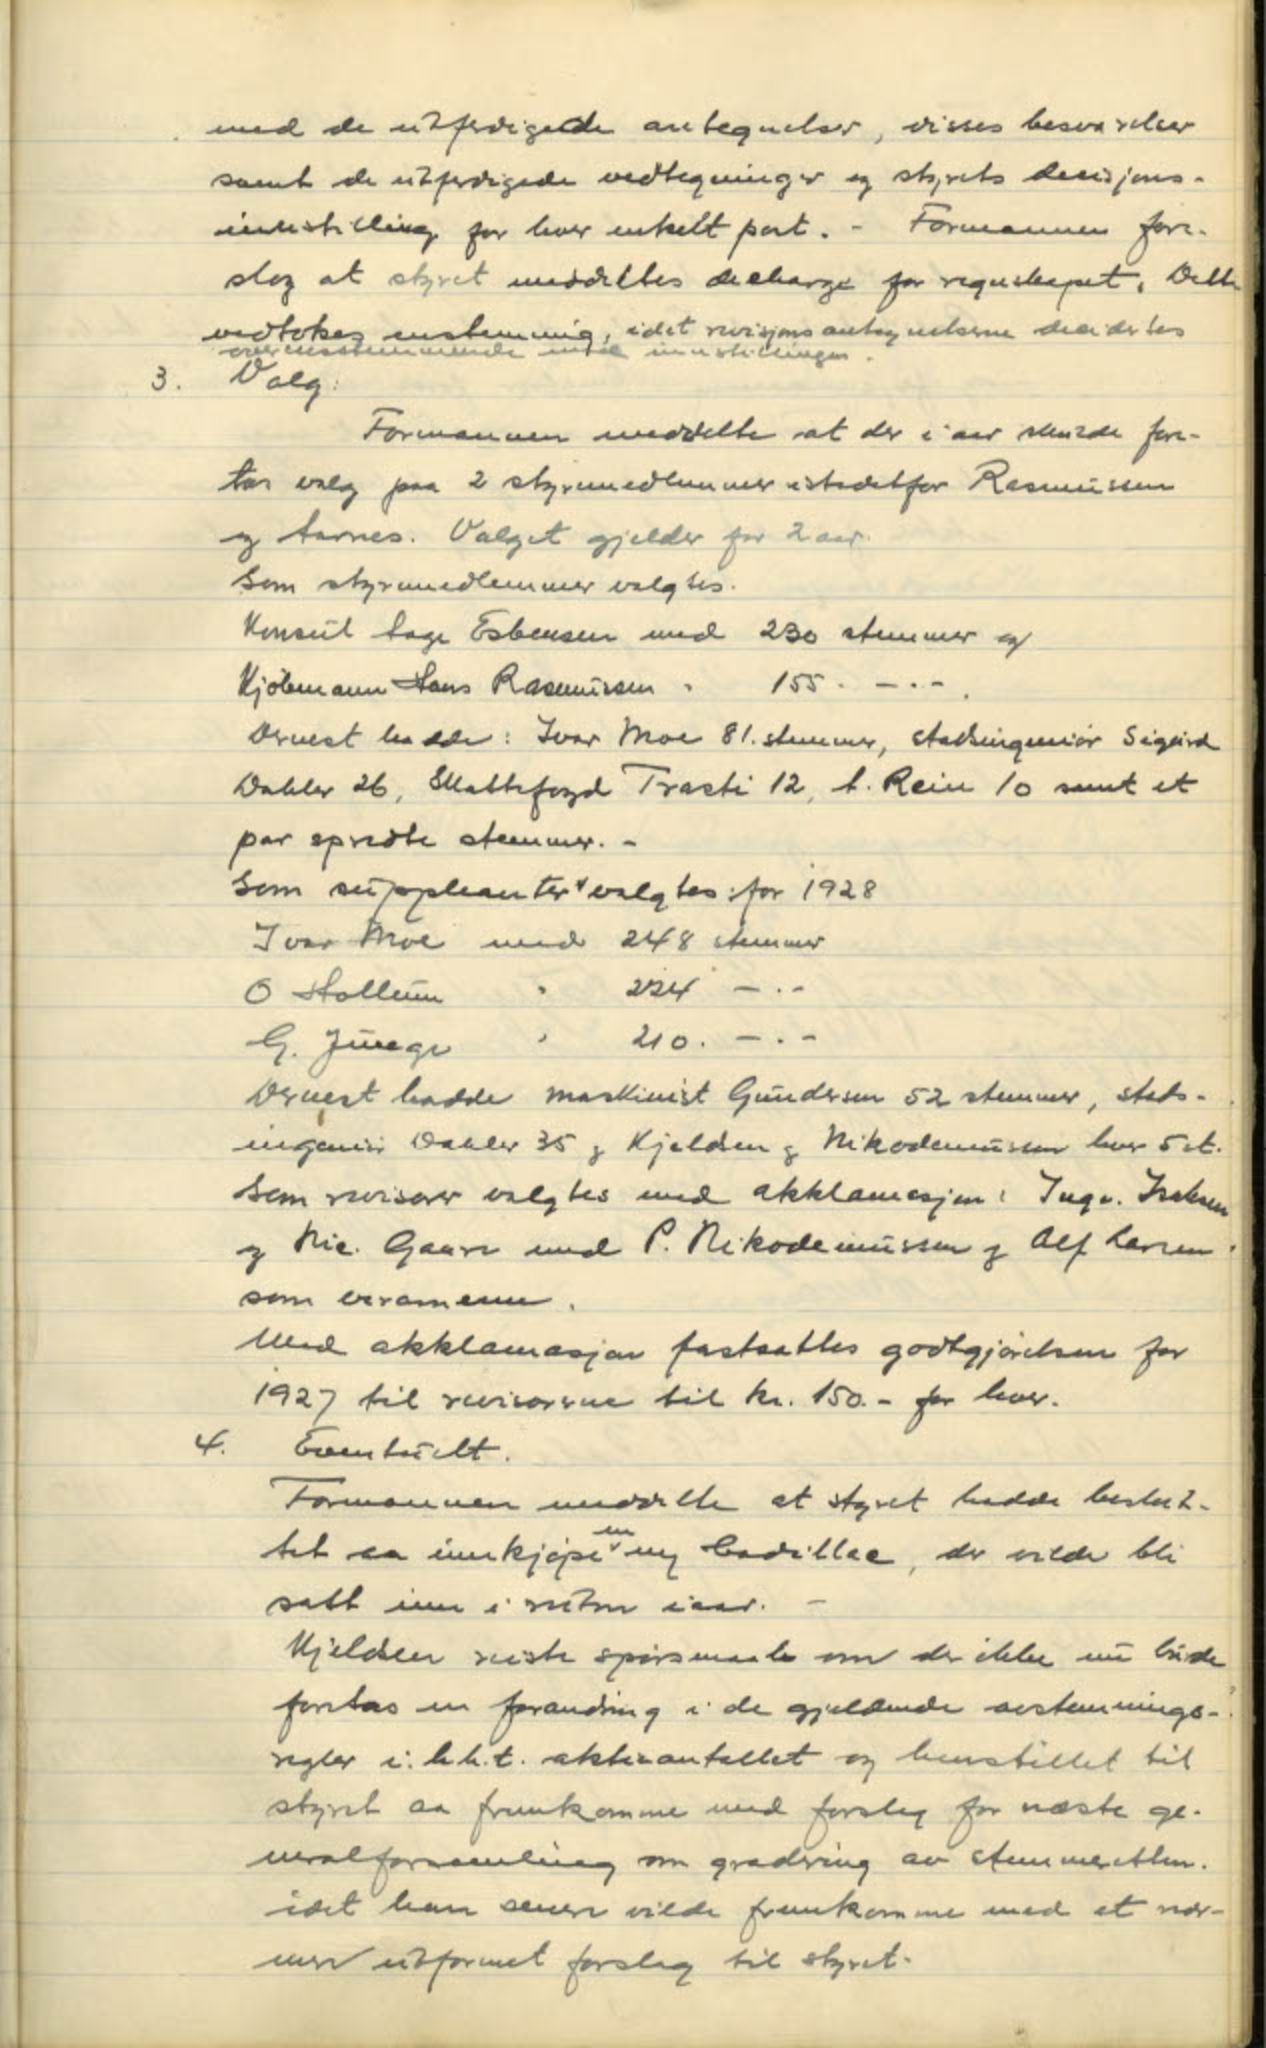 med de utferdigede antegnelser, disses besvarelser
samt de utferdigede vedtegninger og styrets desisjons-
innstilling for hver enkelt post. - Formannen fore-
slog at styret meddeltes decharge for regnskapet. Dette
vedtokes enstemmig, idet revisjonsantegnelserne decidertes
overensstemmende med innstillingen.
3. Valg:
Formannen meddelte at der i aar skulde fore-
tas valg paa 2 styremedlemmer istedetfor Rasmussen
og Aarnes. Valget gjelder for 2 aar.
Som styremedlemmer valgtes.
Konsul Aage Esbensen med 230 stemmer og
Kjöbmann Hans Rasmussen " 155. - " -.
Dernest hadde: Ivar Moe 81. stemmer, stadsingeniör Sigurd
Dahler 26, Skattefogd Trasti 12, A. Rein 10 samt et
par spredte stemmer. -
Som suppleanter valgtes for 1928
Ivar Moe med 248 stemmer
O Hollum " 224 - " -
G. Juege " 210. - " -
Dernest hadde maskinist Gundersen 52 stemmer, stads-
ingeniör Dahler 35 og Kjeldsen og Nikodemussen hver 5 st.
Som revisorer valgtes med akklamasjon: Ingv. Isaksen
og Nic. Gaare med P. Nikodemussen og Alf Larsen
som varamenn.
Med akklamasjon fastsattes godtgjörelsen for
1927 til revisorene til kr. 150.- for hver.
4. Eventuelt.
Formannen meddelte at styret hadde beslut-
tet aa innkjöpe en ny Cadillac, der vilde bli
satt inn i ruten iaar. -
Kjeldsen reiste spörsmaalet om der ikke nu burde
foretas en forandring i de gjeldende avstemnings-
regler i. h. h. t. aktieantallet og henstillet til
styret aa fremkomme med forslag for næste ge-
neralforsamling om gradering av stemmeretten.
idet han senere vilde fremkomme med et nær-
mere utformet forslag til styret.